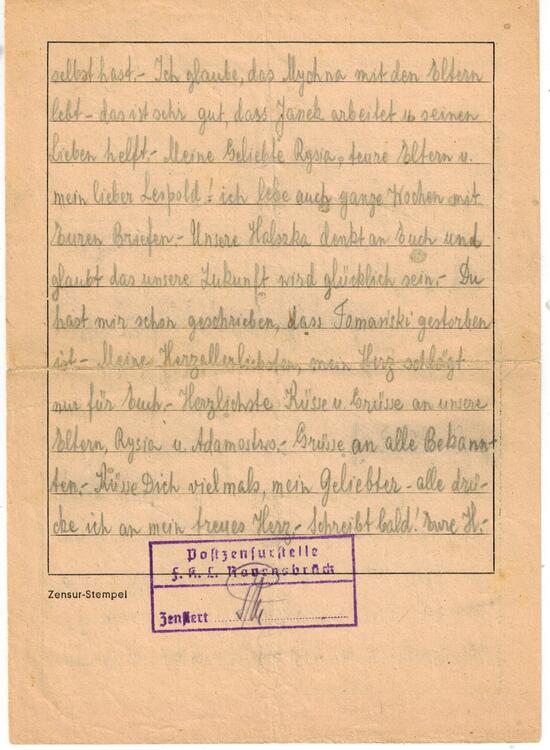 selbst hast.- Ich glaube, das Mychna mit den Eltern
lebt - das ist sehr gut, dass Janek arbeitet u. seinen
Lieben helft.- Meine Geliebte Rysia, teure Eltern u.
mein lieber Leopold! ich lebe auch ganze Wochen mit
Euren Briefen - Unsere Halszka denkt an Euch und
glaubt das unsere Zukunft wird glücklich sein.- Du
hast mir schon geschrieben, dass Tomański gestorben
ist - Meine Herzallerliebsten, mein Herz schlägt
nur für Euch.- Herzlichste Küsse u. Grüsse an unsere
Eltern, Rysia u. Adamostwo.- Grüsse an alle Bekann-
ten.- Küsse Dich vielmals, mein Geliebter - alle drü-
cke ich an mein treues Herz - Schreibt bald! Eure H.-
Postzensurstelle
F. K. L. Ravensbrück
Zensur-Stempel
Zensiert